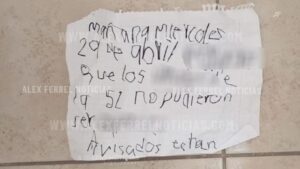 Mañana miercoles
29 de abril
que los
la 52 no pudieron
ser
Avisados estan
ALEX FERREL NOTICIAS